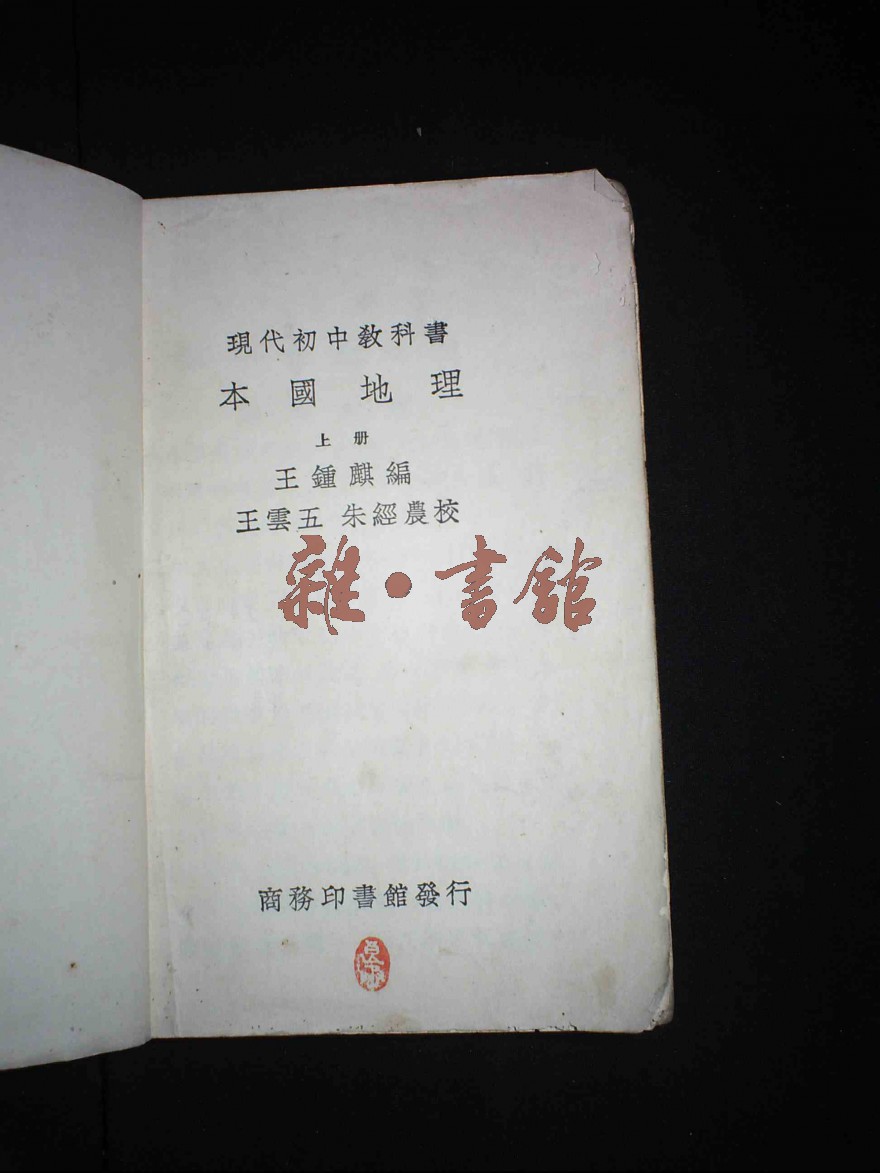 現代初中教科書
本國地理
上册
王鍾麒編
王雲五 朱經農校
雜·書舘
商務印書館發行